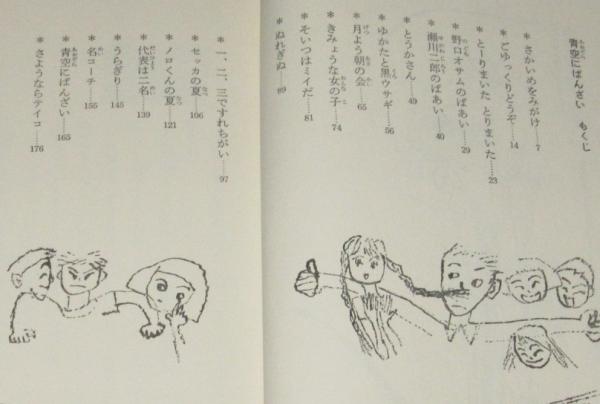 青空にばんざい もくじ
＊さかいめをみがけ……7
＊ごゆっくりどうぞ……14
＊とーりまいた とりまいた……23
＊野口オサムのばあい……29
＊瀬川二郎のばあい……40
＊とうかさん……49
＊ゆかたと黒ウサギ……56
＊月よう朝の会……65
＊きみょうな女の子……74
＊そいつはミイだ……81
＊ぬれぎぬ……89
＊一、二、三ですれちがい……97
＊セッカの夏……106
＊ノロくんの夏……121
＊代表は二名……139
＊うらぎり……145
＊名コーチ……155
＊青空にばんざい……165
＊さようならテイコ……176